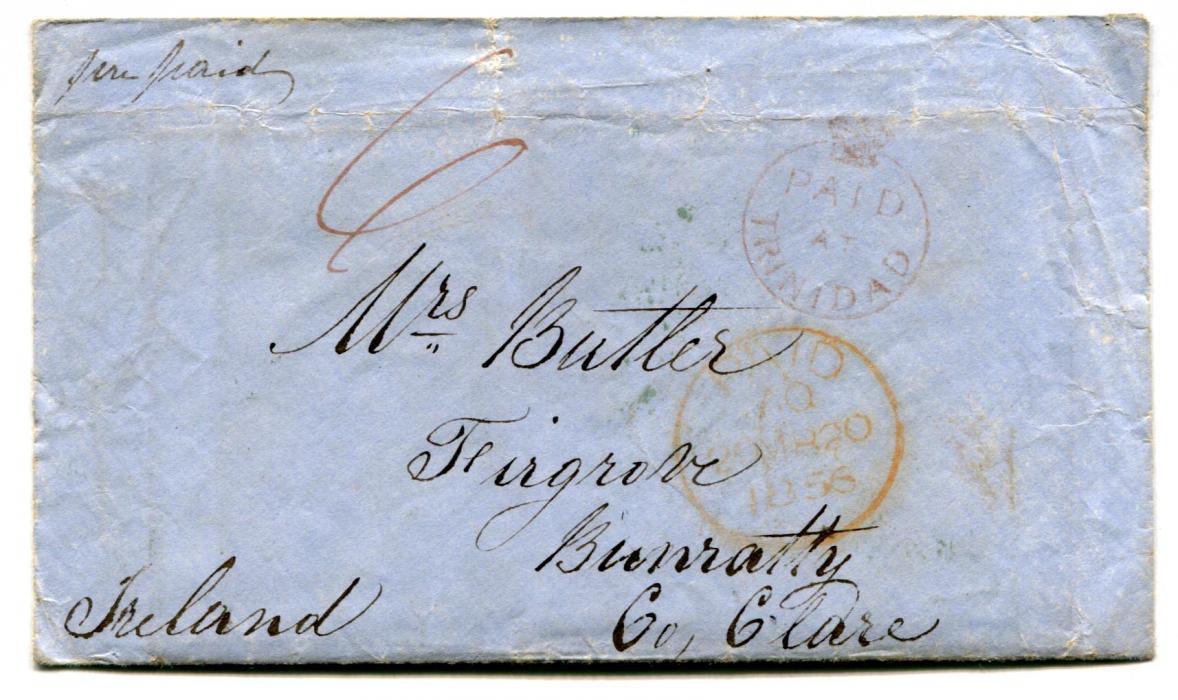 pre paid
6
PAID
AT
TRINIDAD
Mrs Butler
PAID
20 MR 20
1856
Firgrove
Bunratty
Co, Clare
Ireland